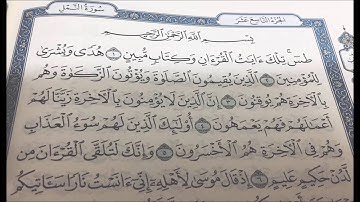 الجزء التاسع عشر
سورة النمل
بسم الله الرحمن الرحيم
طسٓ تِلْكَ ءَايَٰتُ ٱلْقُرْءَانِ وَكِتَابٍ مُّبِينٍ ١ هُدًى وَبُشْرَىٰ
لِلْمُؤْمِنِينَ ٢ ٱلَّذِينَ يُقِيمُونَ ٱلصَّلَوٰةَ وَيُؤْتُونَ ٱلزَّكَوٰةَ وَهُم
بِٱلْءَاخِرَةِ هُمْ يُوقِنُونَ ٣ إِنَّ ٱلَّذِينَ لَا يُؤْمِنُونَ بِٱلْءَاخِرَةِ زَيَّنَّا لَهُمْ
أَعْمَٰلَهُمْ فَهُمْ يَعْمَهُونَ ٤ أُو۟لَٰٓئِكَ ٱلَّذِينَ لَهُمْ سُوٓءُ ٱلْعَذَابِ
وَهُمْ فِى ٱلْءَاخِرَةِ هُمُ ٱلْأَخْسَرُونَ ٥ وَإِنَّكَ لَتُلَقَّى ٱلْقُرْءَانَ مِن
لَّدُنْ حَكِيمٍ عَلِيمٍ ٦ إِذْ قَالَ مُوسَىٰ لِأَهْلِهِۦٓ إِنِّىٓ ءَانَسْتُ نَارًا سَـَٔاتِيكُم